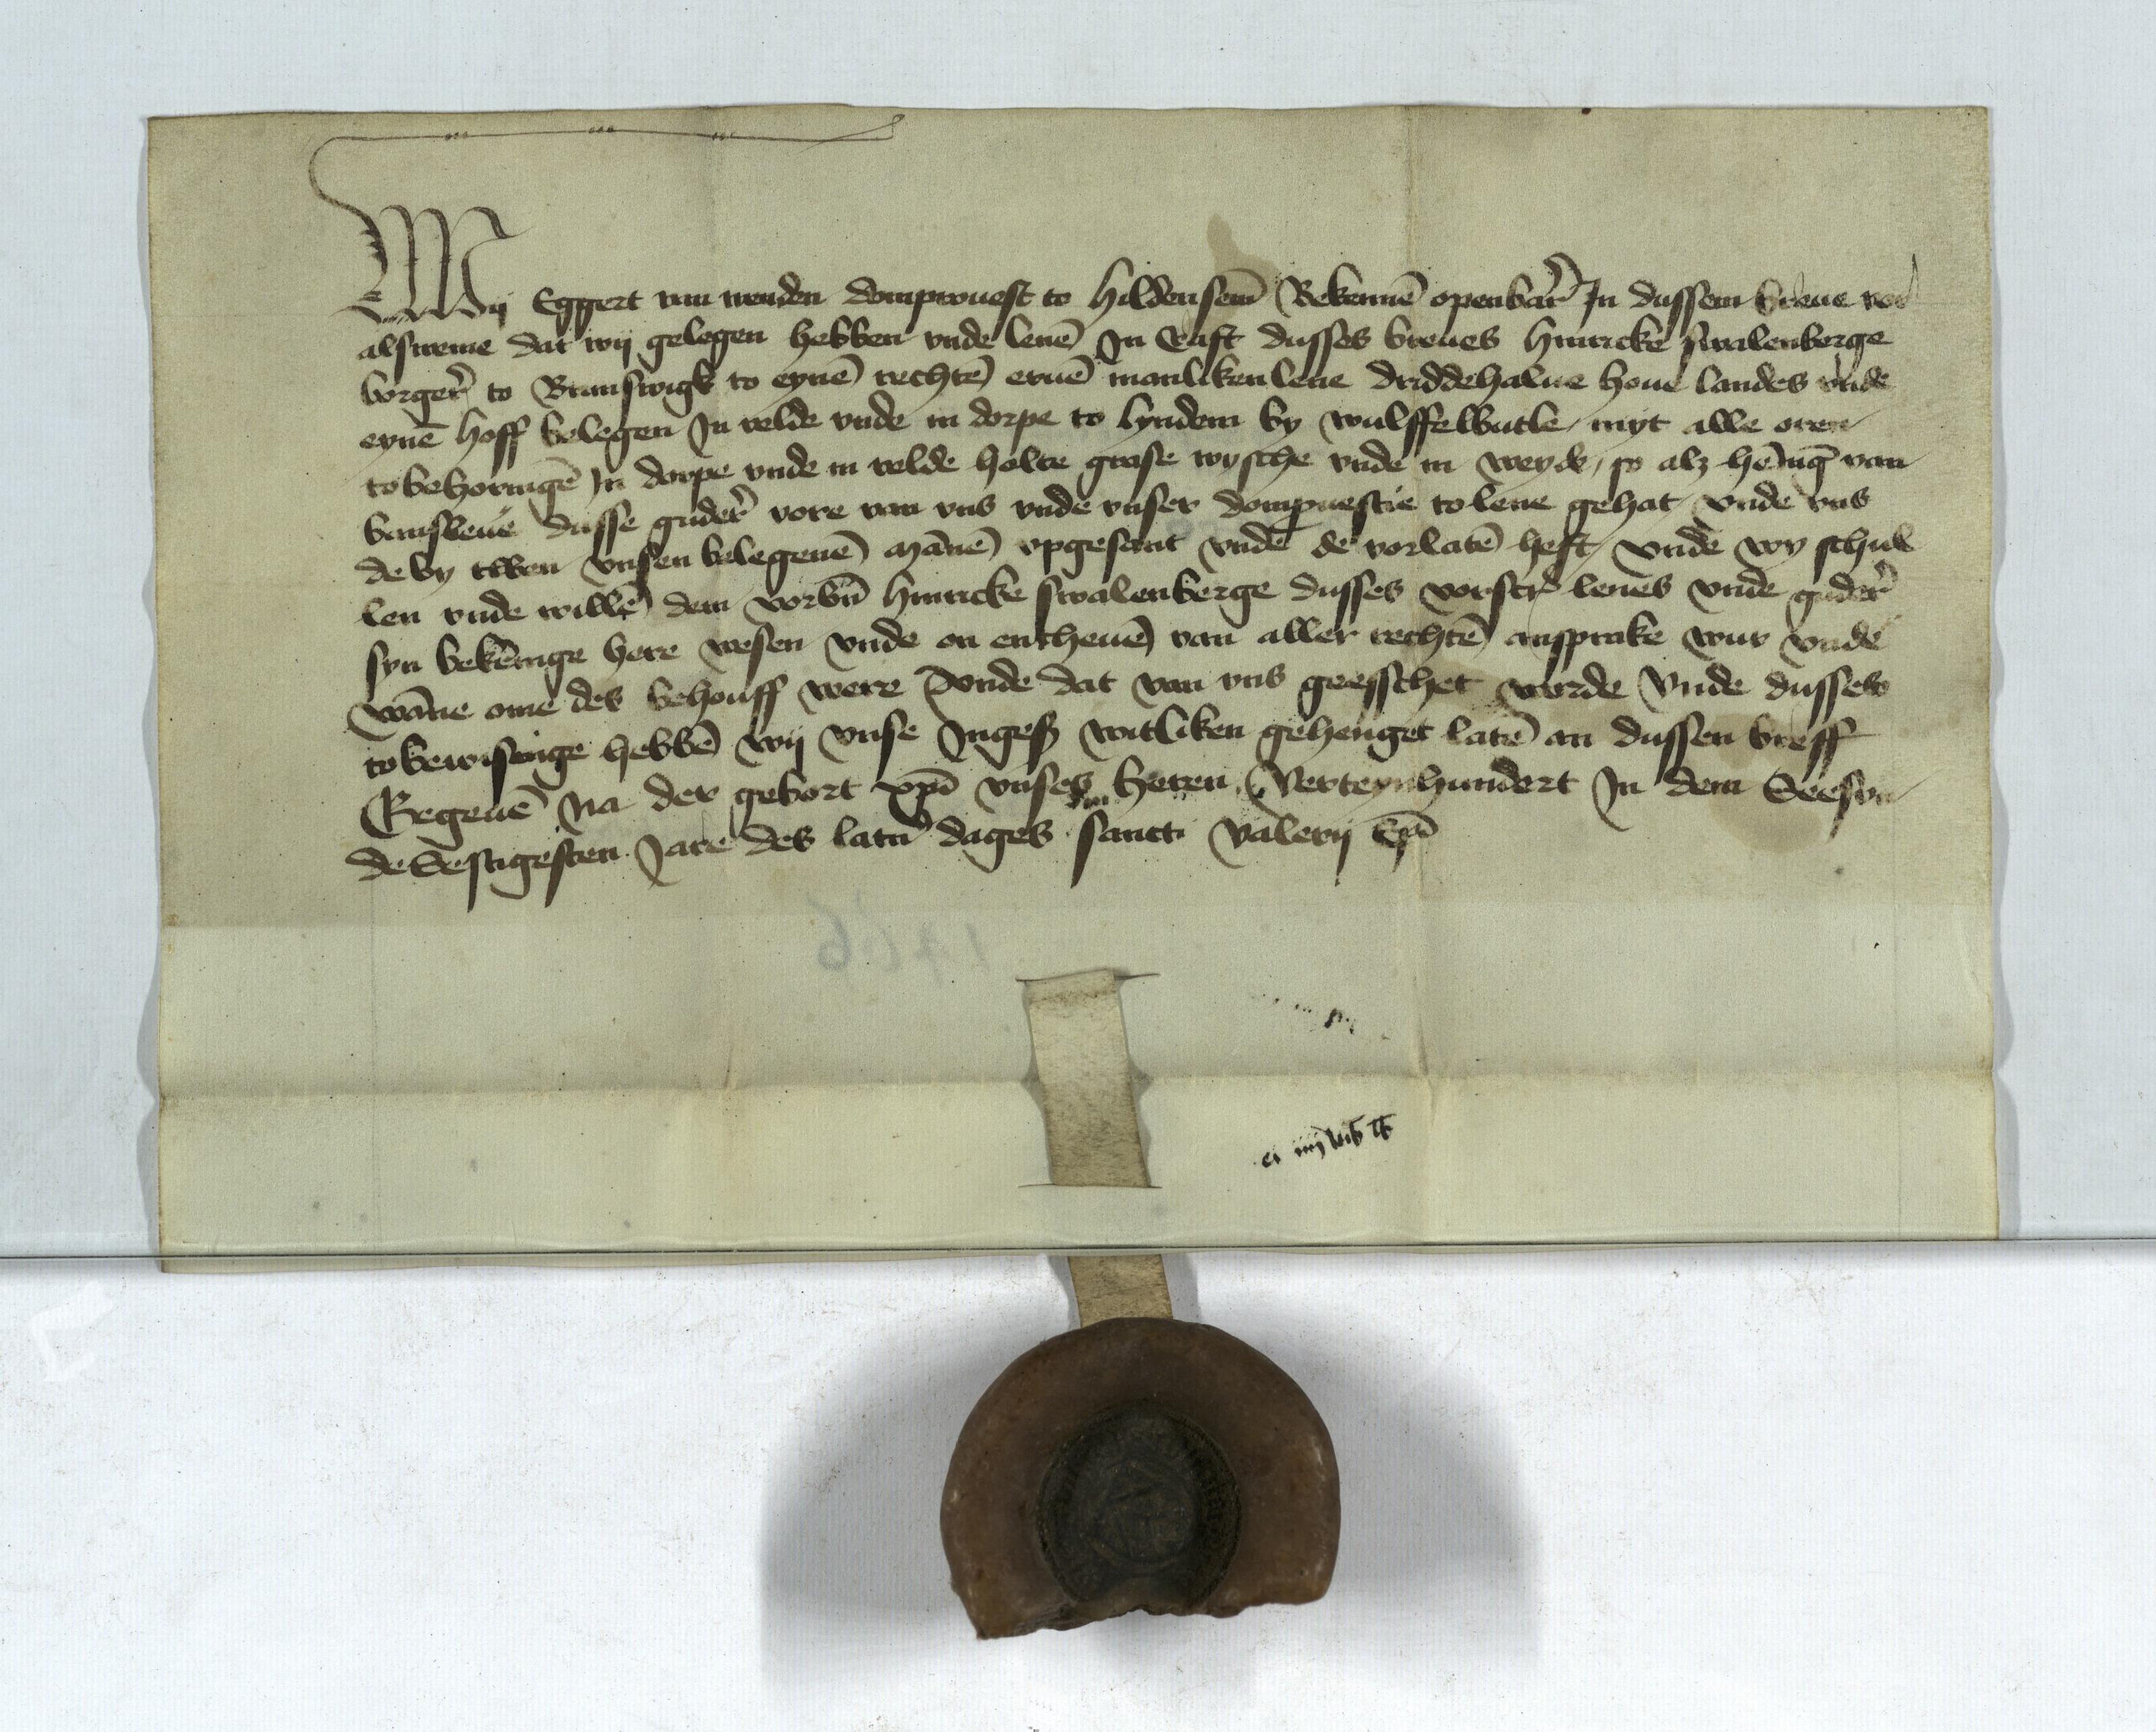 Wij Eggert van wenden domprouest to hildensem̄ Bekennē openbar̄ In dussem breue vor
alsweme dat wij gelegen hebben vnde lenē In Craft dusses breues hinricke swalenberge
borger̄ to Brunswigk to eynē rechtē eruē manliken lene driddehalue houe landes vnde
eynē hoff belegen In velde vnde in dorpe to lyndem by wulffelbutle myt alle oren
tobehoringē In dorpe vnde in velde holte grase wysche vnde in weyde, so alz hēnīg van
bansleue dusse guder̄ vore van vns vnde vnser dompuestie to lene gehat, vnde vns
de by twen vnsen belegenē mānē vpgesant vnde de vorlatē heft, vnde wy schul
len vnde willē dem vorbn̄ hinricke swalenberge dusses vorscr̄ lenes vnde guder̄
syn bekēnige here wesen vnde on entheuē van aller rechtē ansprake wur vnde
wāne ome des behouff were vnde dat van vns geesschet worde Vnde dusses
to bewisinge hebbē wij vnse Ingeß witliken gehenget latē an dussen breff
Gegeuē Na der gebort xpī vnses heren Verteynhundert In dem Seesvn
deSestigesten Jare des latn̄ dages sancti Valerij Epī
1466